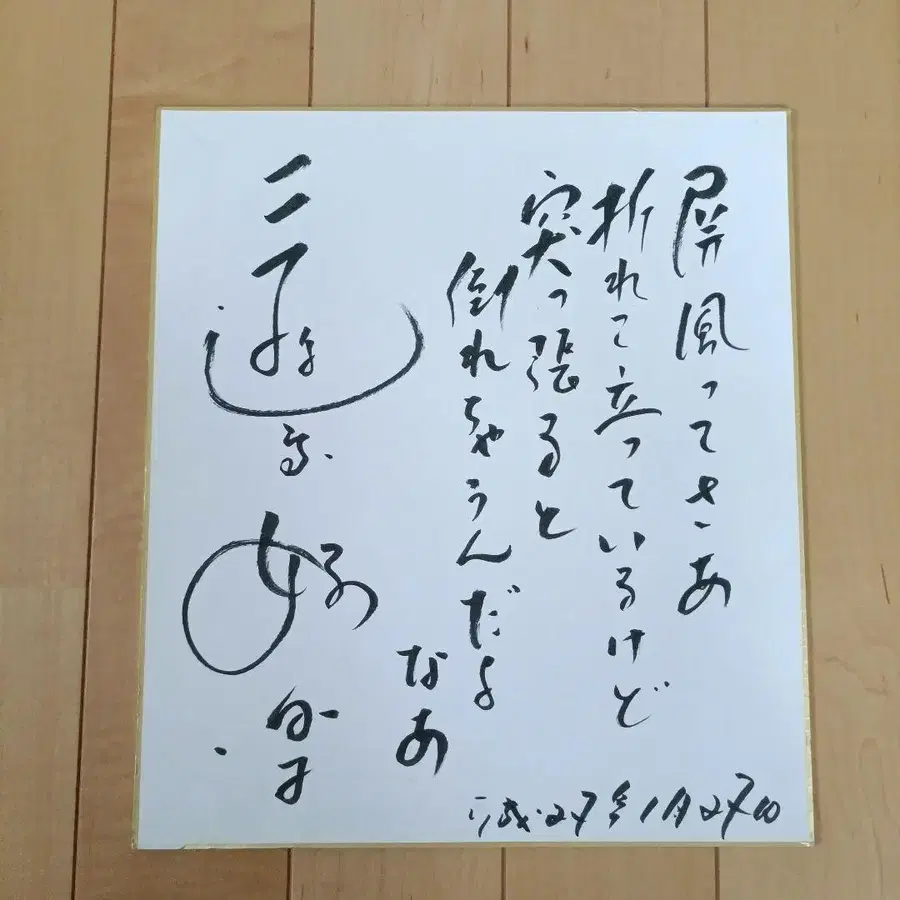 屏風ってさあ
折れて立っているけど
突っ張ると
倒れちゃうんだよ
なあ
三遊亭好楽
平成27年1月27日